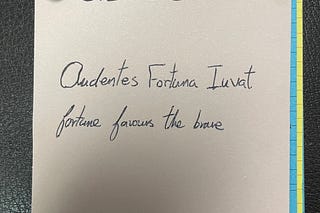 Audentes Fortuna Iuvat
fortune favours the brave